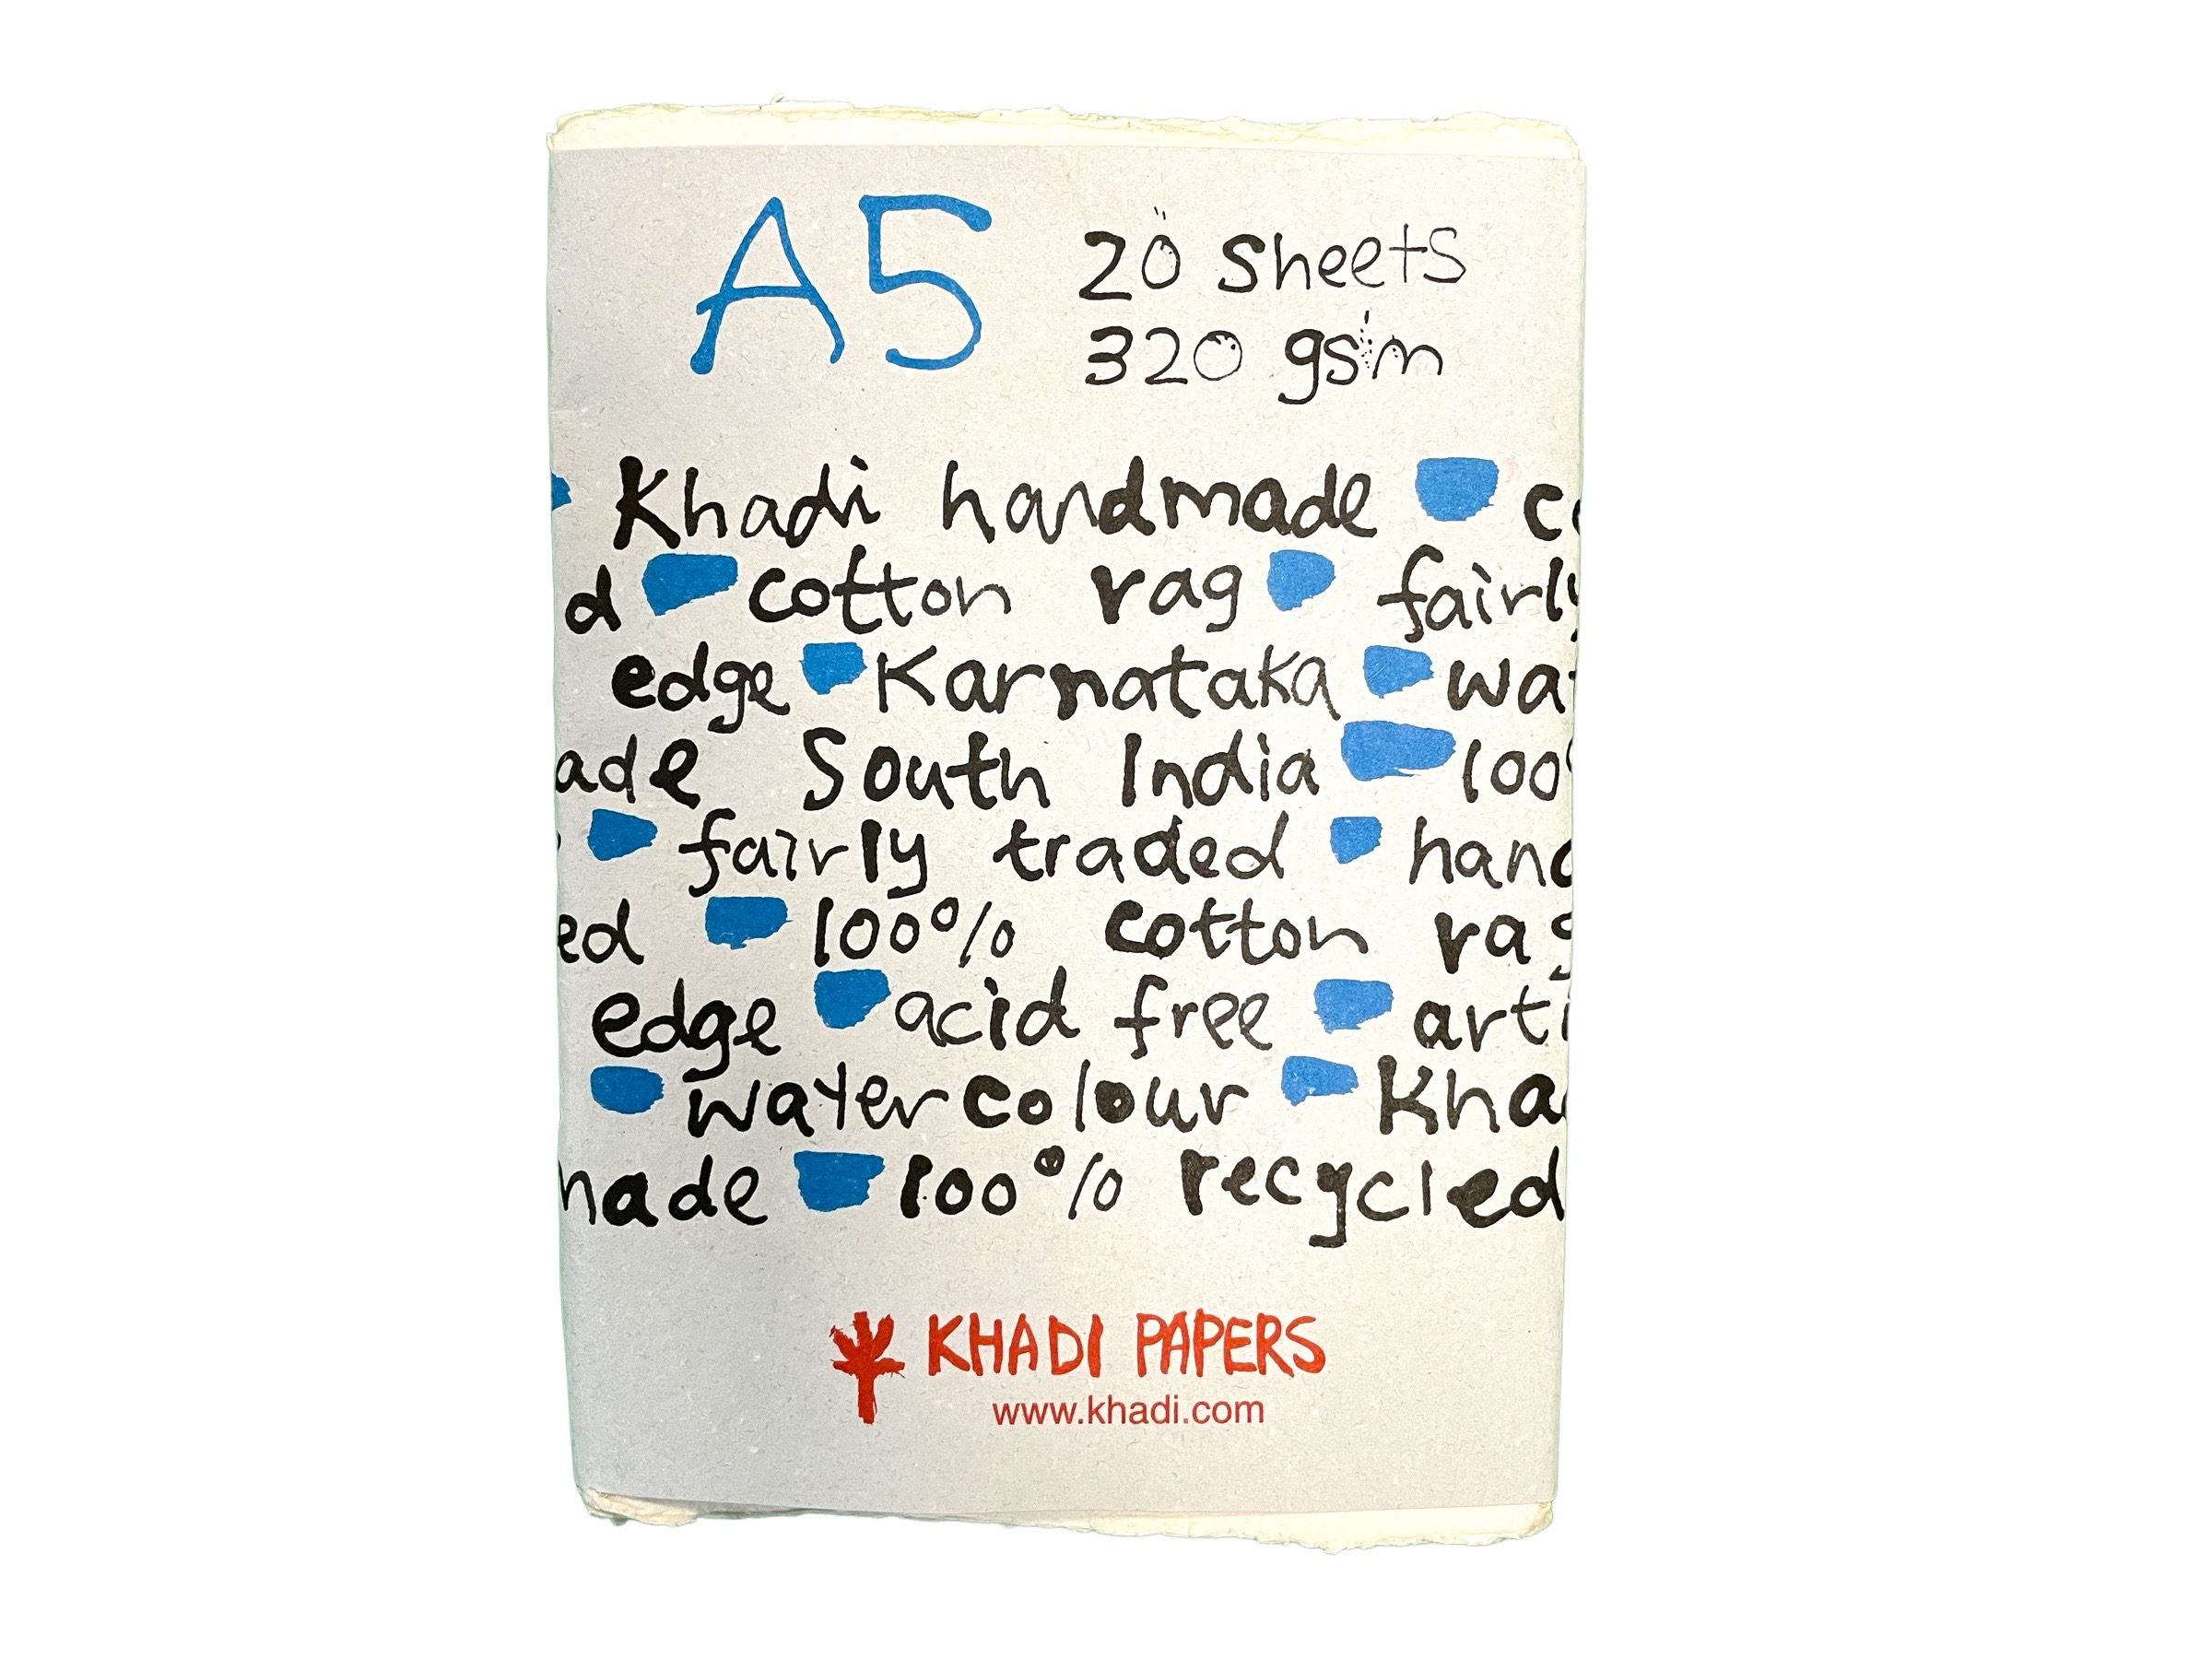 A5
20 sheets
320 gsm
Khadi handmade
d cotton rag fairly
edge Karnataka wat
ade South India 100%
fairly traded hand
ed 100% cotton rag
edge acid free arti
watercolour Khad
made 100% recycled
KHADI PAPERS
www.khadi.com